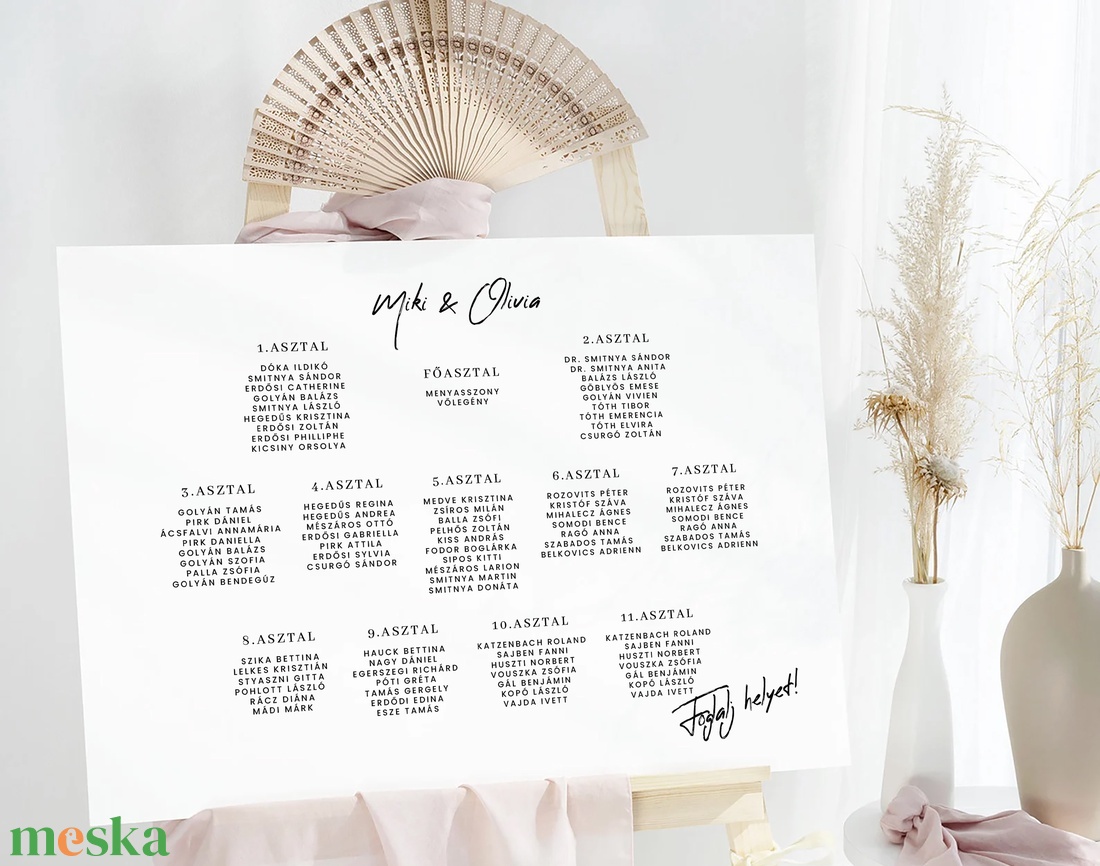 Miki & Olivia
1.ASZTAL
DÓKA ILDIKÓ
SMITNYA SÁNDOR
ERDŐSI CATHERINE
GOLYÁN BALÁZS
SMITNYA LÁSZLÓ
HEGEDŰS KRISZTINA
ERDŐSI ZOLTÁN
ERDŐSI PHILLIPHE
KICSINY ORSOLYA
FŐASZTAL
MENYASSZONY
VŐLEGÉNY
2.ASZTAL
DR. SMITNYA SÁNDOR
DR. SMITNYA ANITA
BALÁZS LÁSZLÓ
GÖBLYÖS EMESE
GOLYÁN VIVIEN
TÓTH TIBOR
TÓTH EMERENCIA
TÓTH ELVIRA
CSURGÓ ZOLTÁN
3.ASZTAL
GOLYÁN TAMÁS
PIRK DÁNIEL
ÁCSFALVI ANNAMÁRIA
PIRK DANIELLA
GOLYÁN BALÁZS
GOLYÁN SZOFIA
PALLA ZSÓFIA
GOLYÁN BENDEGÚZ
4.ASZTAL
HEGEDŰS REGINA
HEGEDŰS ANDREA
MÉSZÁROS OTTÓ
ERDŐSI GABRIELLA
PIRK ATTILA
ERDŐSI SYLVIA
CSURGÓ SÁNDOR
5.ASZTAL
MEDVE KRISZTINA
ZSÍROS MILÁN
BALLA ZSÓFI
PELHŐS ZOLTÁN
KISS ANDRÁS
FODOR BOGLÁRKA
SIPOS KITTI
MÉSZÁROS LARION
SMITNYA MARTIN
SMITNYA DONÁTA
6.ASZTAL
ROZOVITS PÉTER
KRISTÓF SZÁVA
MIHALECZ ÁGNES
SOMODI BENCE
RAGÓ ANNA
SZABADOS TAMÁS
BELKOVICS ADRIENN
7.ASZTAL
ROZOVITS PÉTER
KRISTÓF SZÁVA
MIHALECZ ÁGNES
SOMODI BENCE
RAGÓ ANNA
SZABADOS TAMÁS
BELKOVICS ADRIENN
8.ASZTAL
SZIKA BETTINA
LELKES KRISZTIÁN
STYASZNI GITTA
POHLOTT LÁSZLÓ
RÁCZ DIÁNA
MÁDI MÁRK
9.ASZTAL
HAUCK BETTINA
NAGY DÁNIEL
EGERSZEGI RICHÁRD
PÓTI GRÉTA
TAMÁS GERGELY
ERDŐDI EDINA
ESZE TAMÁS
10.ASZTAL
KATZENBACH ROLAND
SAJBEN FANNI
HUSZTI NORBERT
VOUSZKA ZSÓFIA
GÁL BENJÁMIN
KOPÓ LÁSZLÓ
VAJDA IVETT
11.ASZTAL
KATZENBACH ROLAND
SAJBEN FANNI
HUSZTI NORBERT
VOUSZKA ZSÓFIA
GÁL BENJÁMIN
KOPÓ LÁSZLÓ
VAJDA IVETT
Foglalj helyet!
meska